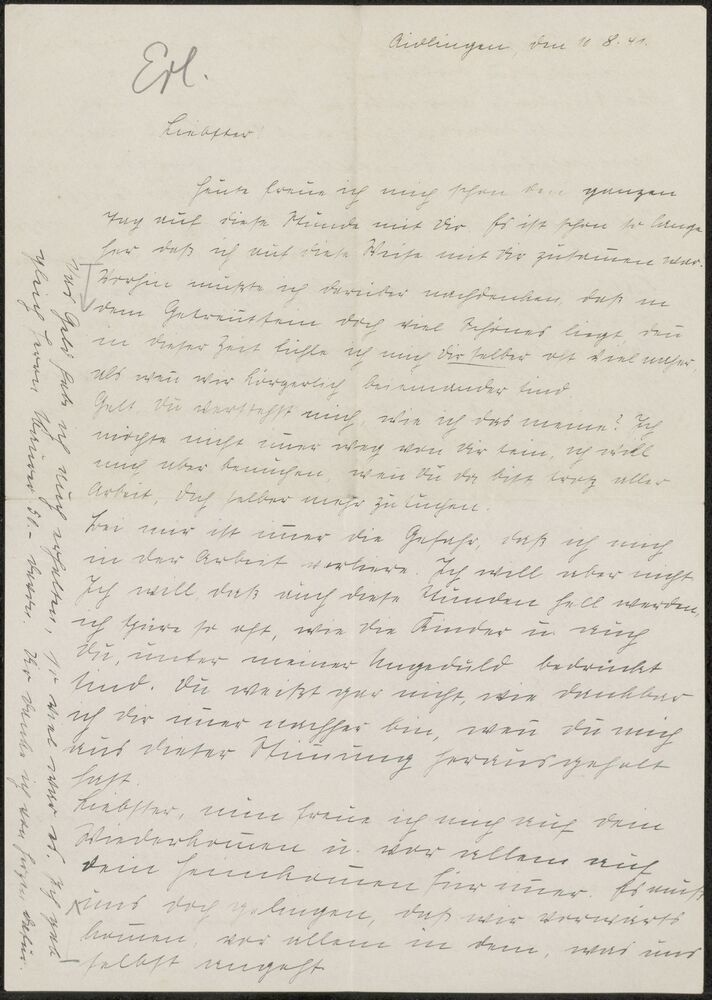 Aidlingen, den 11. 8. 41.
Erl.
Liebster!
Heute freue ich mich schon den ganzen
Tag auf diese Stunde mit Dir. Es ist schon so lange
her daß ich auf diese Weise mit Dir zusammen war.
Vorhin mußte ich darüber nachdenken, daß in
dem Getrenntsein doch viel Schönes liegt den
in dieser Zeit fühle ich mich Dir selber oft viel näher,
als wen wir körperlich beieinander sind
Gelt, Du verstehst mich, wie ich das meine? Ich
möchte nicht imer weg von Dir sein, ich will
mich aber bemühen, wen Du da bist trotz aller
Arbeit, Dich selber mehr zu suchen.
Bei mir ist imer die Gefahr, daß ich mich
in der Arbeit verliere. Ich will aber nicht
Ich will, daß auch diese Stunden hell werden,
ich spüre so oft, wie die Kinder u. auch
Du, unter meiner Ungeduld bedrückt
sind. Du weißt gar nicht, wie dankbar
ich Dir imer nachher bin, wen Du mich
aus dieser Stimung herausgeholt
hast.
Liebster, nun freue ich mich auf Dein
Wiederkomen u. vor allem auf
Dein Heimkomen für imer. Es muß
uns doch gelingen, daß wir vorwärts
komen, vor allem in dem, was uns
selbst angeht
Das Geld hab ich auch erhalten, Ich
gleich Deine